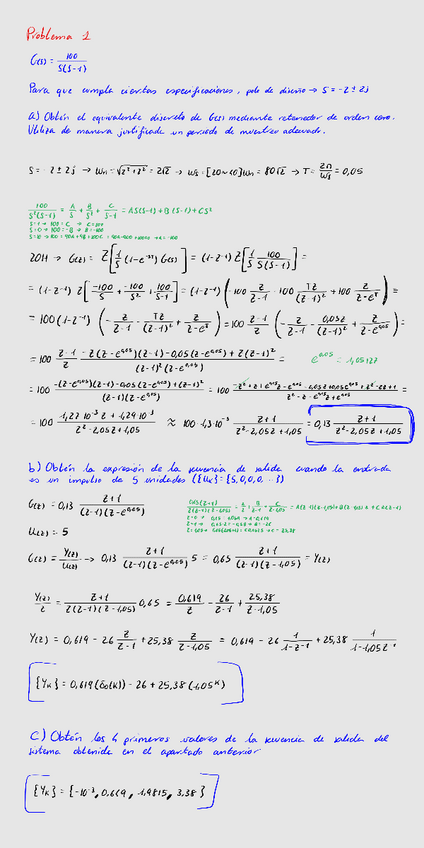 Problema 2
G(s) = 100 / S(S-1)
Para que cumpla ciertas especificaciones, polo de diseño → S = -2 ± 2j
a) Obtén el equivalente discreto de G(s) mediante retenedor de orden cero.
Utiliza de manera justificada un periodo de muestreo adecuado.
S = -2 ± 2j → Wn = √(2²+2²) = 2√2 → Ws = [20~40]Wn = 80√2 → T = 2π/Ws = 0,05
100 / S²(S-1) = A/S + B/S² + C/S-1 = AS(S-1) + B(S-1) + CS²
S=1 → 100 = C → C=100
S=0 → 100 = -B → B=-100
ZOH → G(z) = Z[1/S (1-e^-sT) G(s)] = (1-z⁻¹) Z[1/S 100/S(S-1)] =
= (1-z⁻¹) Z[-100/S + -100/S² + 100/S-1] = (1-z⁻¹)(-100 z/z-1 - 100 Tz/(z-1)² + 100 z/z-e^T) =
= 100(1-z⁻¹)(-z/z-1 - Tz/(z-1)² + z/z-e^T) = 100 z-1/z (-z/z-1 - 0,05z/(z-1)² + z/z-e^0,05) =
= 100 z-1/z · -z(z-e^0,05)(z-1) - 0,05z(z-e^0,05) + z(z-1)² / (z-1)²(z-e^0,05) = e^0,05 = 1,05127
= 100 -(z-e^0,05)(z-1) - 0,05(z-e^0,05) + (z-1)² / (z-1)(z-e^0,05) = 100 -z² + z + e^0,05 z - e^0,05 - 0,05z + 0,05e^0,05 + z² - 2z + 1 / z² - z - e^0,05 z + e^0,05 =
= 100 1,27·10⁻³ z + 1,29·10⁻³ / z² - 2,05z + 1,05 ≈ 100·1,3·10⁻³ z+1 / z² - 2,05z + 1,05 = 0,13 z+1 / z² - 2,05z + 1,05
b) Obtén la expresión de la secuencia de salida cuando la entrada
es un impulso de 5 unidades ({Uk} = {5,0,0,0...})
G(z) = 0,13 z+1 / (z-1)(z-e^0,05)
U(z) = 5
G(z) = Y(z)/U(z) → 0,13 z+1 / (z-1)(z-e^0,05) 5 = 0,65 z+1 / (z-1)(z-1,05) = Y(z)
Y(z)/z = z+1 / z(z-1)(z-1,05) 0,65 = 0,619/z - 26/z-1 + 25,38/z-1,05
Y(z) = 0,619 - 26 z/z-1 + 25,38 z/z-1,05 = 0,619 - 26 1/1-z⁻¹ + 25,38 1/1-1,05z⁻¹
{Yk} = 0,619(δ0(k)) - 26 + 25,38(1,05^k)
C) Obtén los 4 primeros valores de la secuencia de salida del
sistema obtenida en el apartado anterior
{Yk} = {-10⁻³, 0,649, 1,9815, 3,38}